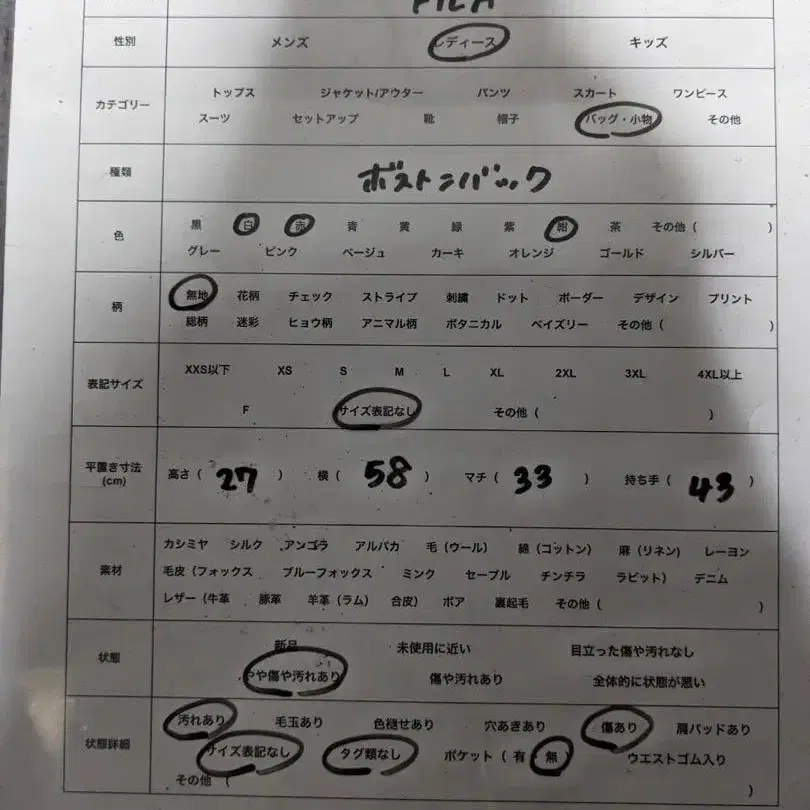 FILA
性別 メンズ レディース キッズ
トップス ジャケット/アウター パンツ スカート ワンピース
カテゴリー
スーツ セットアップ 靴 帽子 バッグ・小物 その他
種類 ボストンバック
黒 白 赤 青 黄 緑 紫 紺 茶 その他 ( )
色
グレー ピンク ベージュ カーキ オレンジ ゴールド シルバー
無地 花柄 チェック ストライプ 刺繍 ドット ボーダー デザイン プリント
柄
総柄 迷彩 ヒョウ柄 アニマル柄 ボタニカル ペイズリー その他 ( )
XXS以下 XS S M L XL 2XL 3XL 4XL以上
表記サイズ
F サイズ表記なし その他 ( )
平置き寸法
(cm)
高さ ( 27 ) 横 ( 58 ) マチ ( 33 ) 持ち手 ( 43 )
カシミヤ シルク アンゴラ アルパカ 毛 (ウール) 綿 (コットン) 麻 (リネン) レーヨン
素材
毛皮 (フォックス ブルーフォックス ミンク セーブル チンチラ ラビット) デニム
レザー (牛革 豚革 羊革 (ラム) 合皮) ボア 裏起毛 その他 ( )
新品 未使用に近い 目立った傷や汚れなし
状態
やや傷や汚れあり 傷や汚れあり 全体的に状態が悪い
汚れあり 毛玉あり 色褪せあり 穴あきあり 傷あり 肩パッドあり
状態詳細
サイズ表記なし タグ類なし ポケット ( 有 ・ 無 ) ウエストゴム入り
その他 ( )